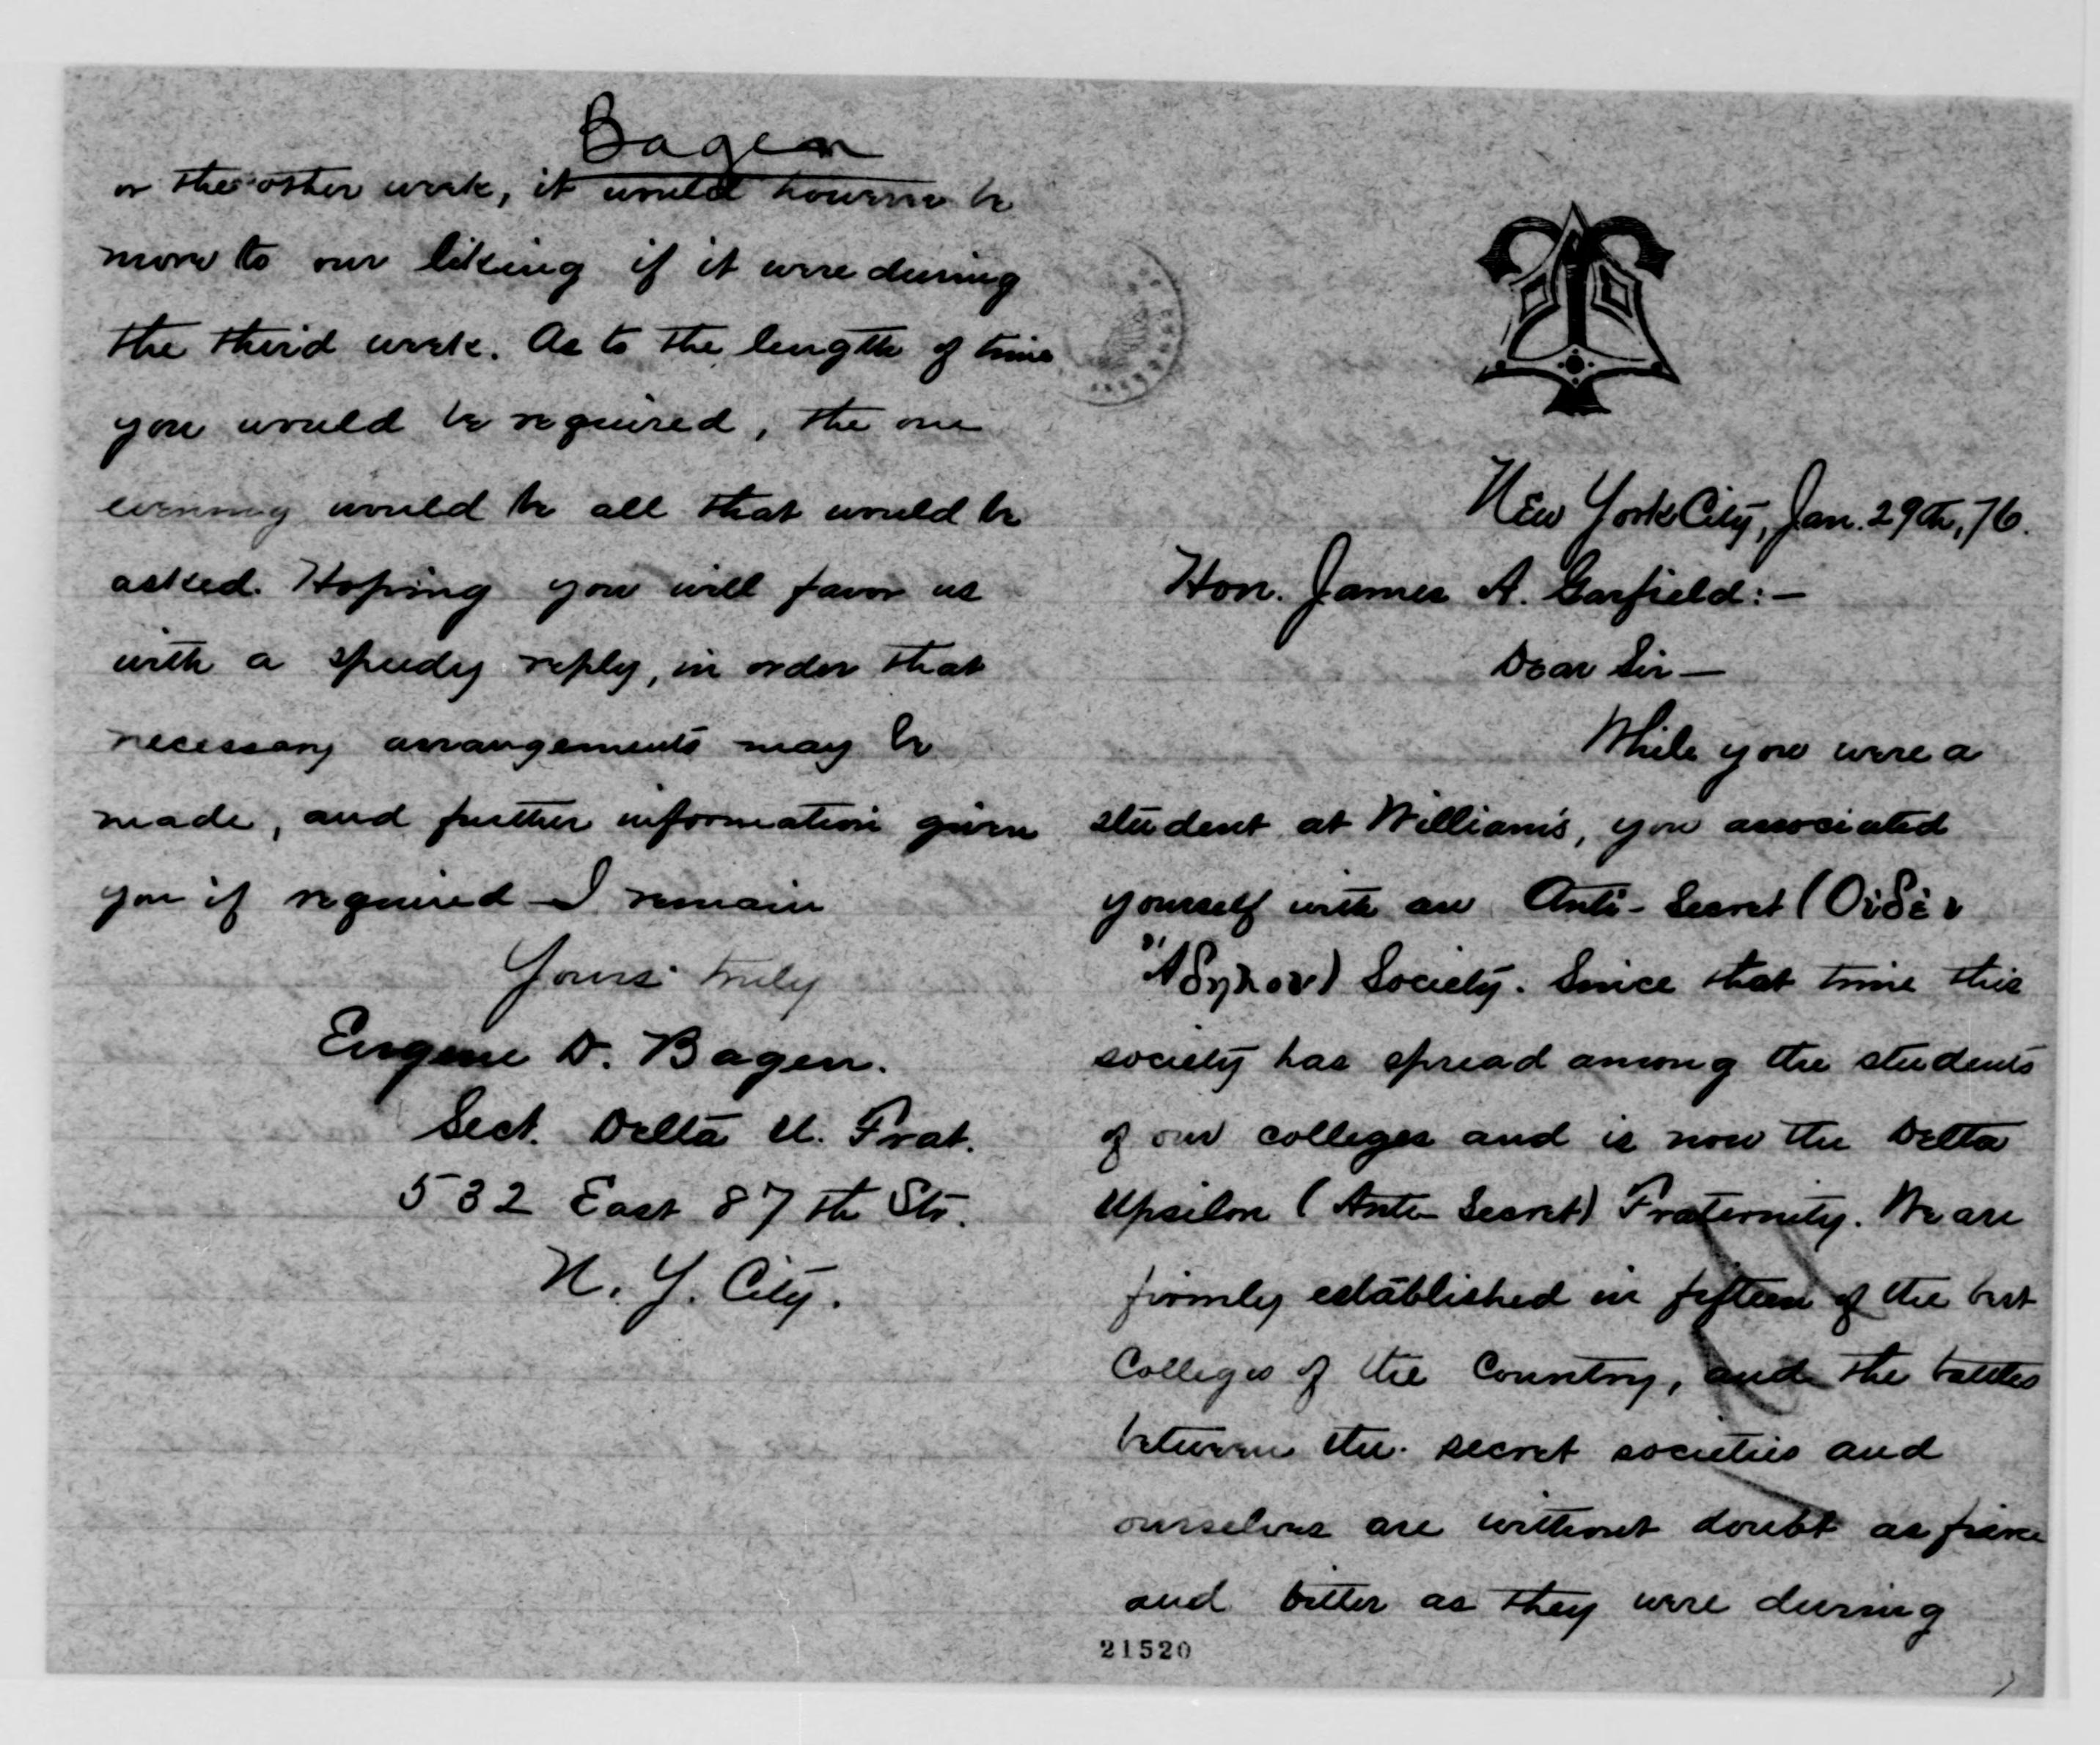 New York City, Jan. 29th, 76.
Hon. James A. Garfield:—
Dear Sir—
While you were a
student at William's, you associated
yourself with an Anti-Secret (Οὐδὲν
Ἄδηλον) Society. Since that time this
society has spread among the students
of our colleges and is now the Delta
Upsilon (Anti-Secret) Fraternity. We are
firmly established in fifteen of the best
Colleges of the Country, and the battles
between the secret societies and
ourselves are without doubt as fierce
and bitter as they were during
21520
Bagen
or the other week, it would however be
more to our liking if it were during
the third week. As to the length of time
you would be required, the one
evening would be all that would be
asked. Hoping you will favor us
with a speedy reply, in order that
necessary arrangements may be
made, and further information given
you if required I remain
Yours truly
Eugene D. Bagen.
Sect. Delta U. Frat.
532 East 87th Str.
N. Y. City.